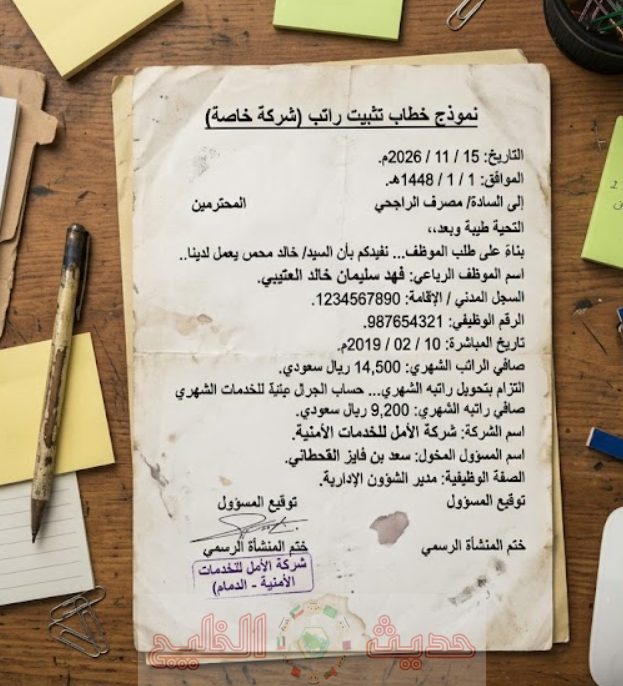 نموذج خطاب تثبيت راتب (شركة خاصة)
التاريخ: 15 / 11 / 2026م.
الموافق: 1 / 1 / 1448هـ.
إلى السادة/ مصرف الراجحي المحترمين
التحية طيبة وبعد،،
بناءً على طلب الموظف... نفيدكم بأن السيد/ خالد محمص يعمل لدينا..
اسم الموظف الرباعي: فهد سليمان خالد العتيبي.
السجل المدني / الإقامة: 1234567890.
الرقم الوظيفي: 987654321.
تاريخ المباشرة: 10 / 02 / 2019م.
صافي الراتب الشهري: 14,500 ريال سعودي.
التزام بتحويل راتبه الشهري... حساب للخدمات الشهري
صافي راتبه الشهري: 9,200 ريال سعودي.
اسم الشركة: شركة الأمل للخدمات الأمنية.
اسم المسؤول المخول: سعد بن فايز القحطاني.
الصفة الوظيفية: مدير الشؤون الإدارية.
توقيع المسؤول توقيع المسؤول
ختم المنشأة الرسمي ختم المنشأة الرسمي
شركة الأمل للخدمات
الأمنية - الدمام)
حديث الخليج